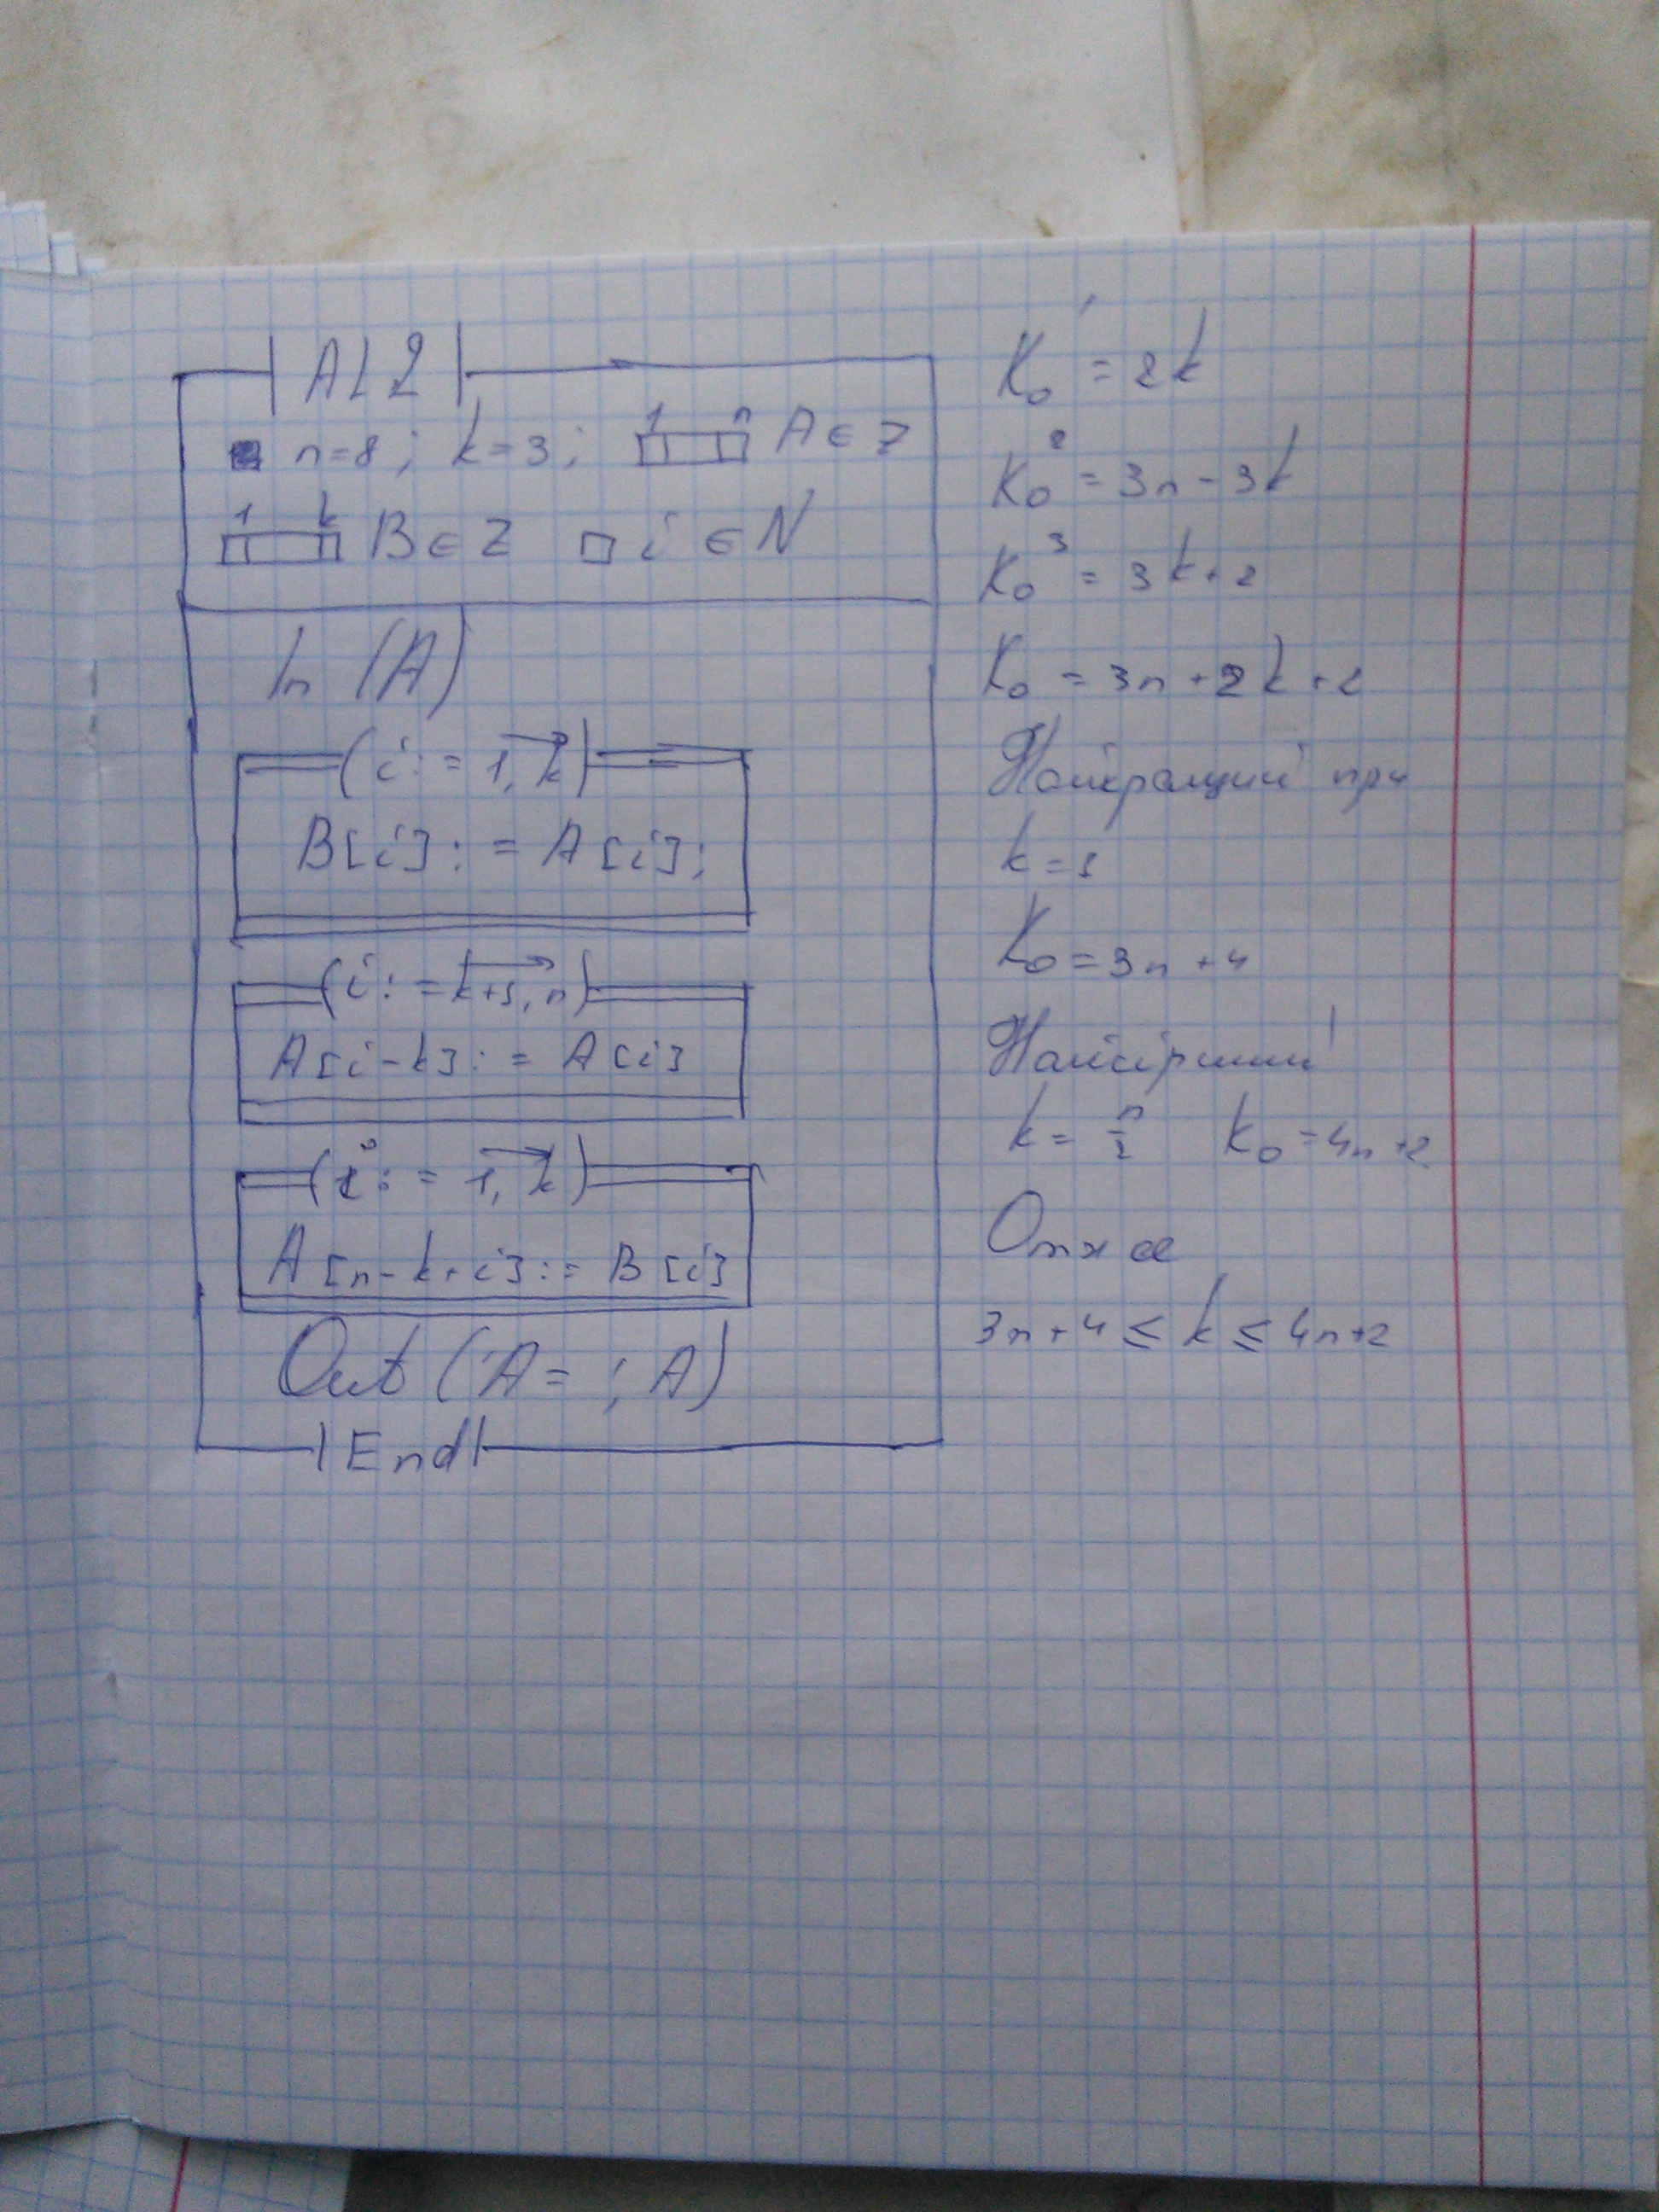 AL2
n=8; k=3; 1 n A∈Z
1 k B∈Z □ i ∈ N
In (A)
(i := 1, k)
B[i] := A[i];
(i := k+1, n)
A[i-k] := A[i]
(i := 1, k)
A[n-k+i] := B[i]
Out ('A= ', A)
End
K₀¹ = 2k
K₀² = 3n - 3k
K₀³ = 3k+2
K₀ = 3n + 2k + 2
Найкращий при
k=1
K₀ = 3n + 4
Найгірший
k = n/2 K₀ = 4n+2
Отже
3n+4 ≤ k ≤ 4n+2